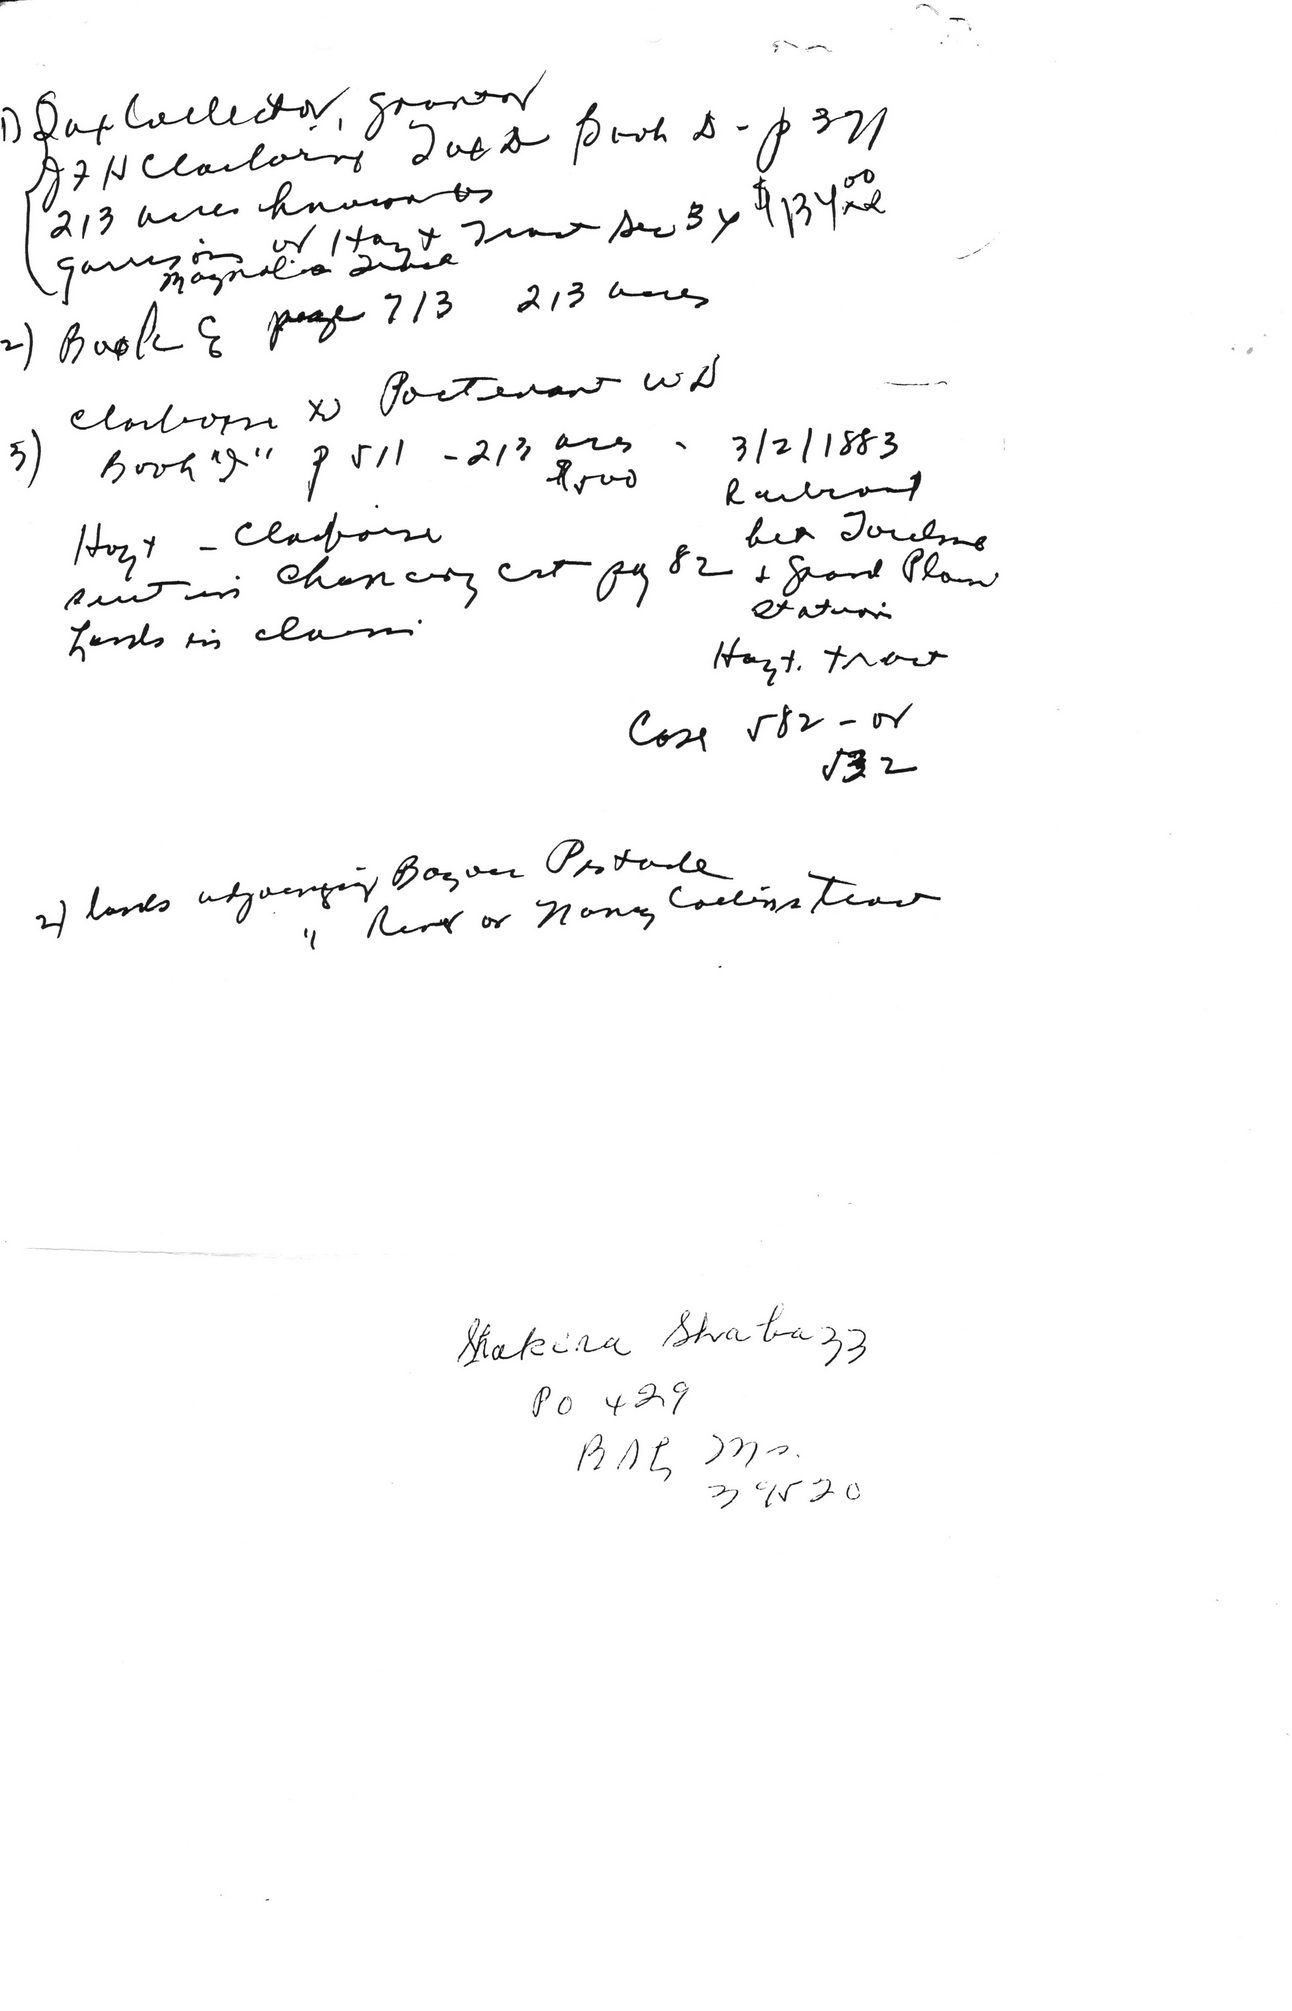 1) Tax Collector, grantor
J F H Claiborne Tax D Book D - p 371
213 acres known as
Garrison or Hoyt Tract Sec 34 $134.00
Magnolia Grove
2) Book E page 713 213 acres
Claiborne to Poitevent WD
3) Book "I" p 511 - 213 acres - 3/2/1883
$500 Railroad
Hoyt - Claiborne bet Toulme
suit in Chancery crt pg 82 + Grand Plain
Station
Lands in claim
Hoyt. tract
Case 582 - or
532
2) lands adjoining Bayou
" or Nancy Collins Tract
Shakira Shabazz
PO 429
BSL Ms.
39520